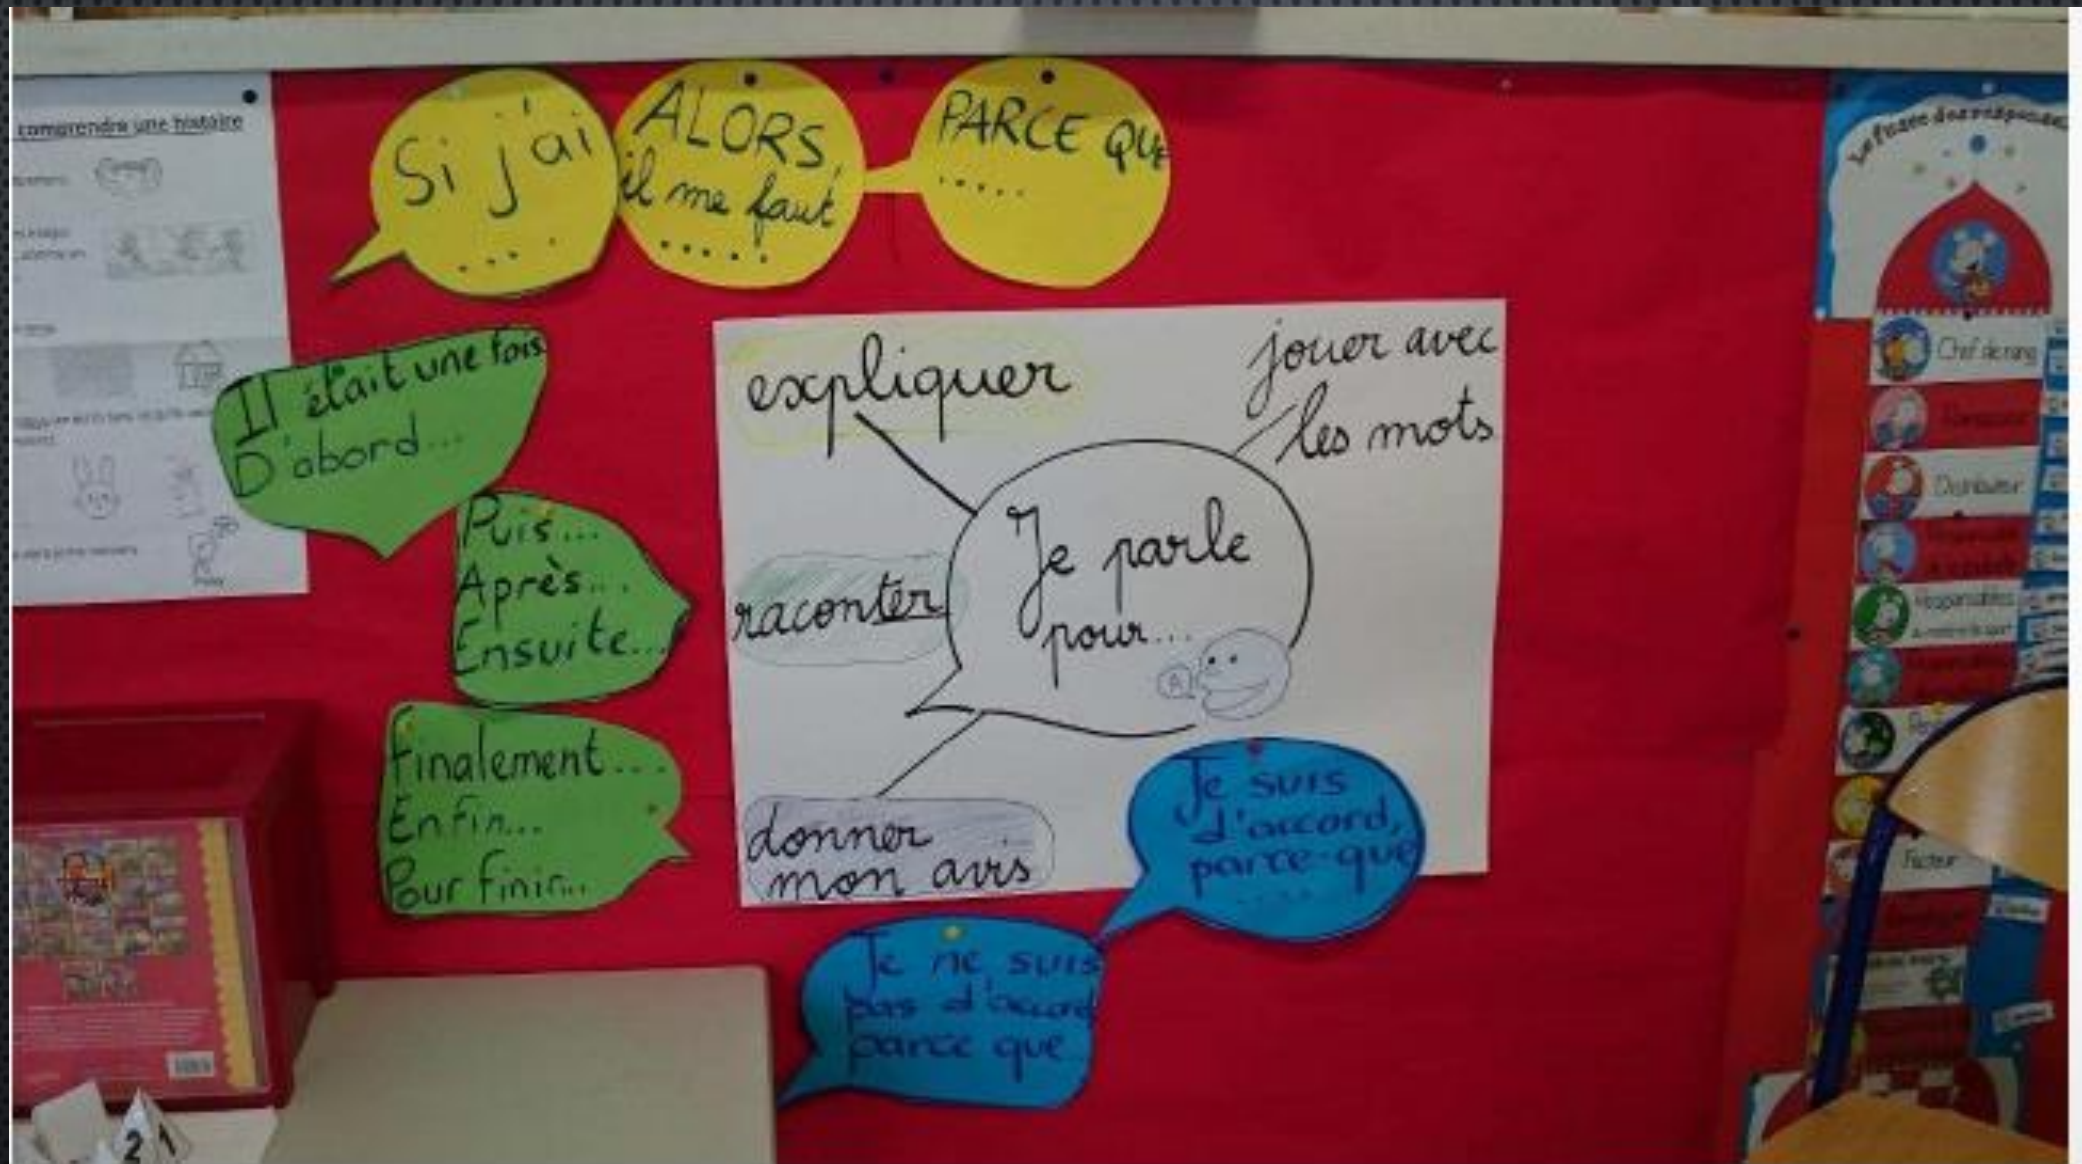 comprendre une histoire
Si j'ai
....
ALORS,
il me faut
.....
PARCE QUE
.....
Il était une fois
D'abord...
Puis...
Après...
Ensuite...
Finalement...
Enfin...
Pour finir...
expliquer
jouer avec
les mots
raconter
Je parle
pour...
A
donner
mon avis
Je suis
d'accord,
parce-que
.....
Je ne suis
pas d'accord
parce que
Chef de rang
Distributeur
Responsables
Facteur
2 1